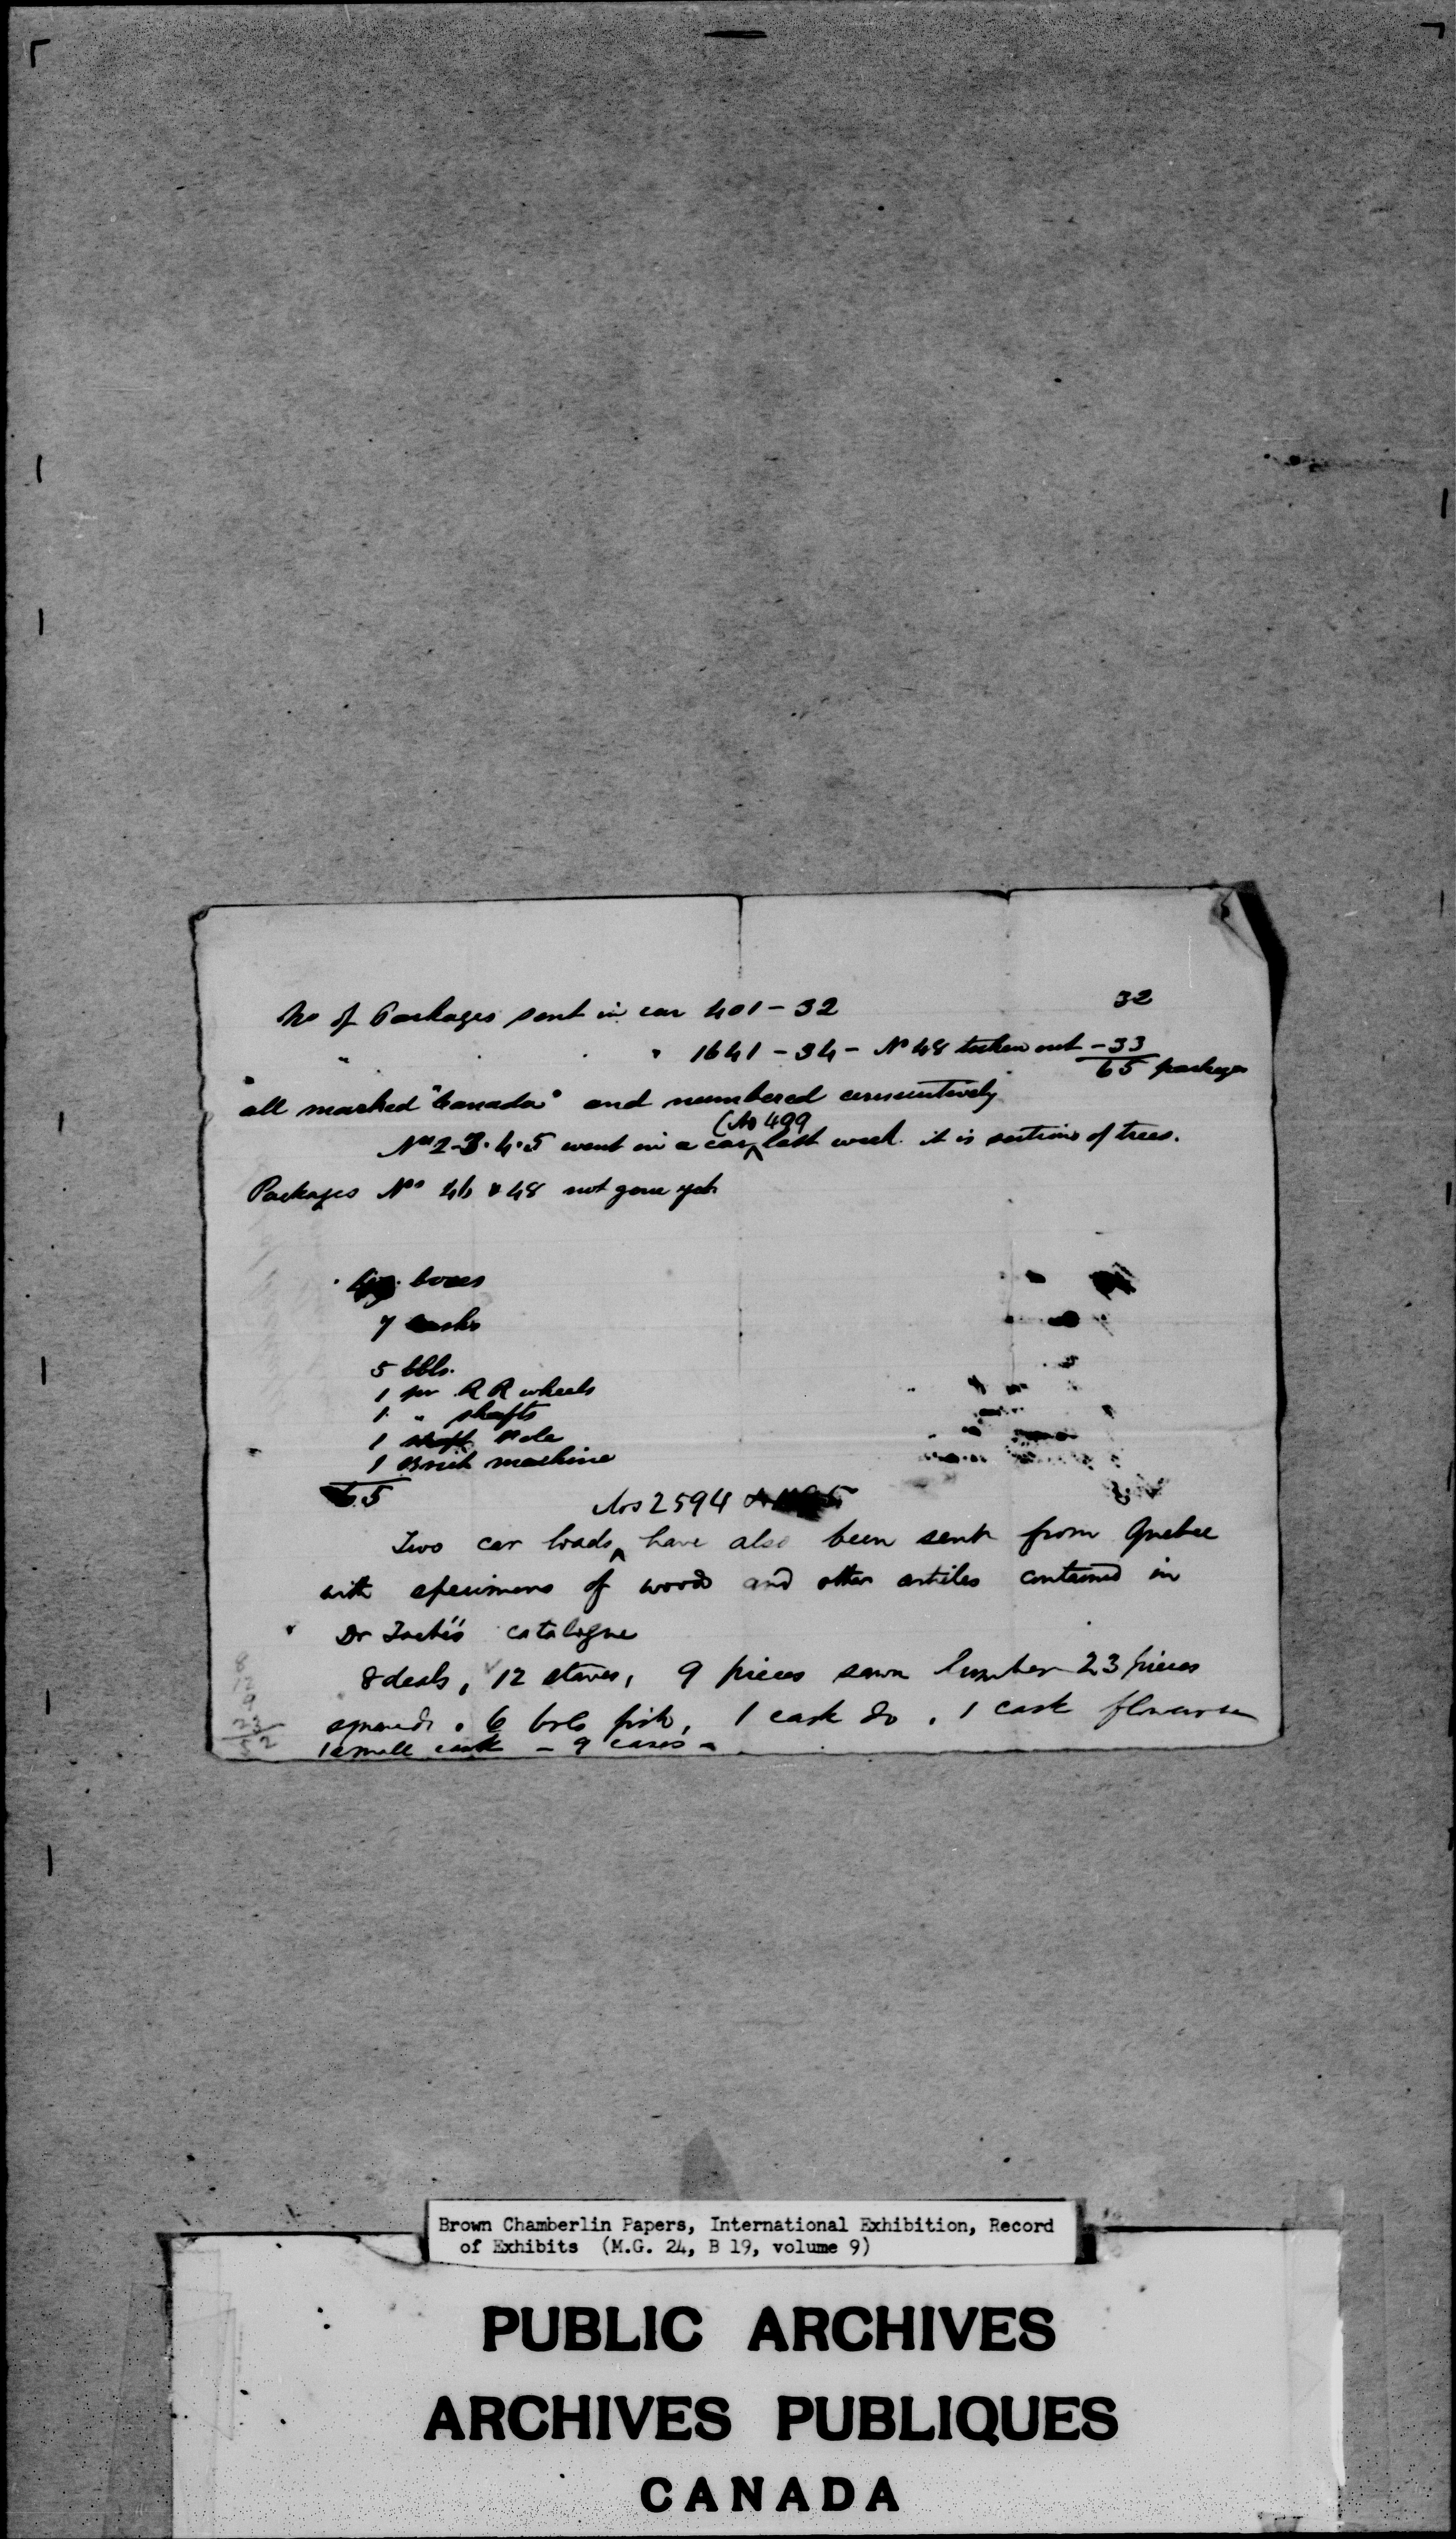 No of Packages sent in car 401 - 32 32
" " " 1641 - 34 - No 48 taken out - 33
65 packages
all marked "Canada" and numbered consecutively
(No 499
Nos 2-3.4.5 went in a car ^ last week. it is sections of trees.
Packages Nos 46 & 48 not gone yet
boxes
7 casks
5 bbls.
1 pr R R wheels
1 " shafts
1 shaft Pole
1 Brick machine
65
Nos 2594
Two car loads ^ have also been sent from Quebec
with specimens of woods and other articles contained in
Dr Taché's catalogue
8 deals, 12 staves, 9 pieces sawn lumber 23 pieces
squared. 6 brls fish, 1 cask do. 1 cask
1 small cask - 9 cases -
8
12
9
23
52
Brown Chamberlin Papers, International Exhibition, Record
of Exhibits (M.G. 24, B 19, volume 9)
PUBLIC ARCHIVES
ARCHIVES PUBLIQUES
CANADA